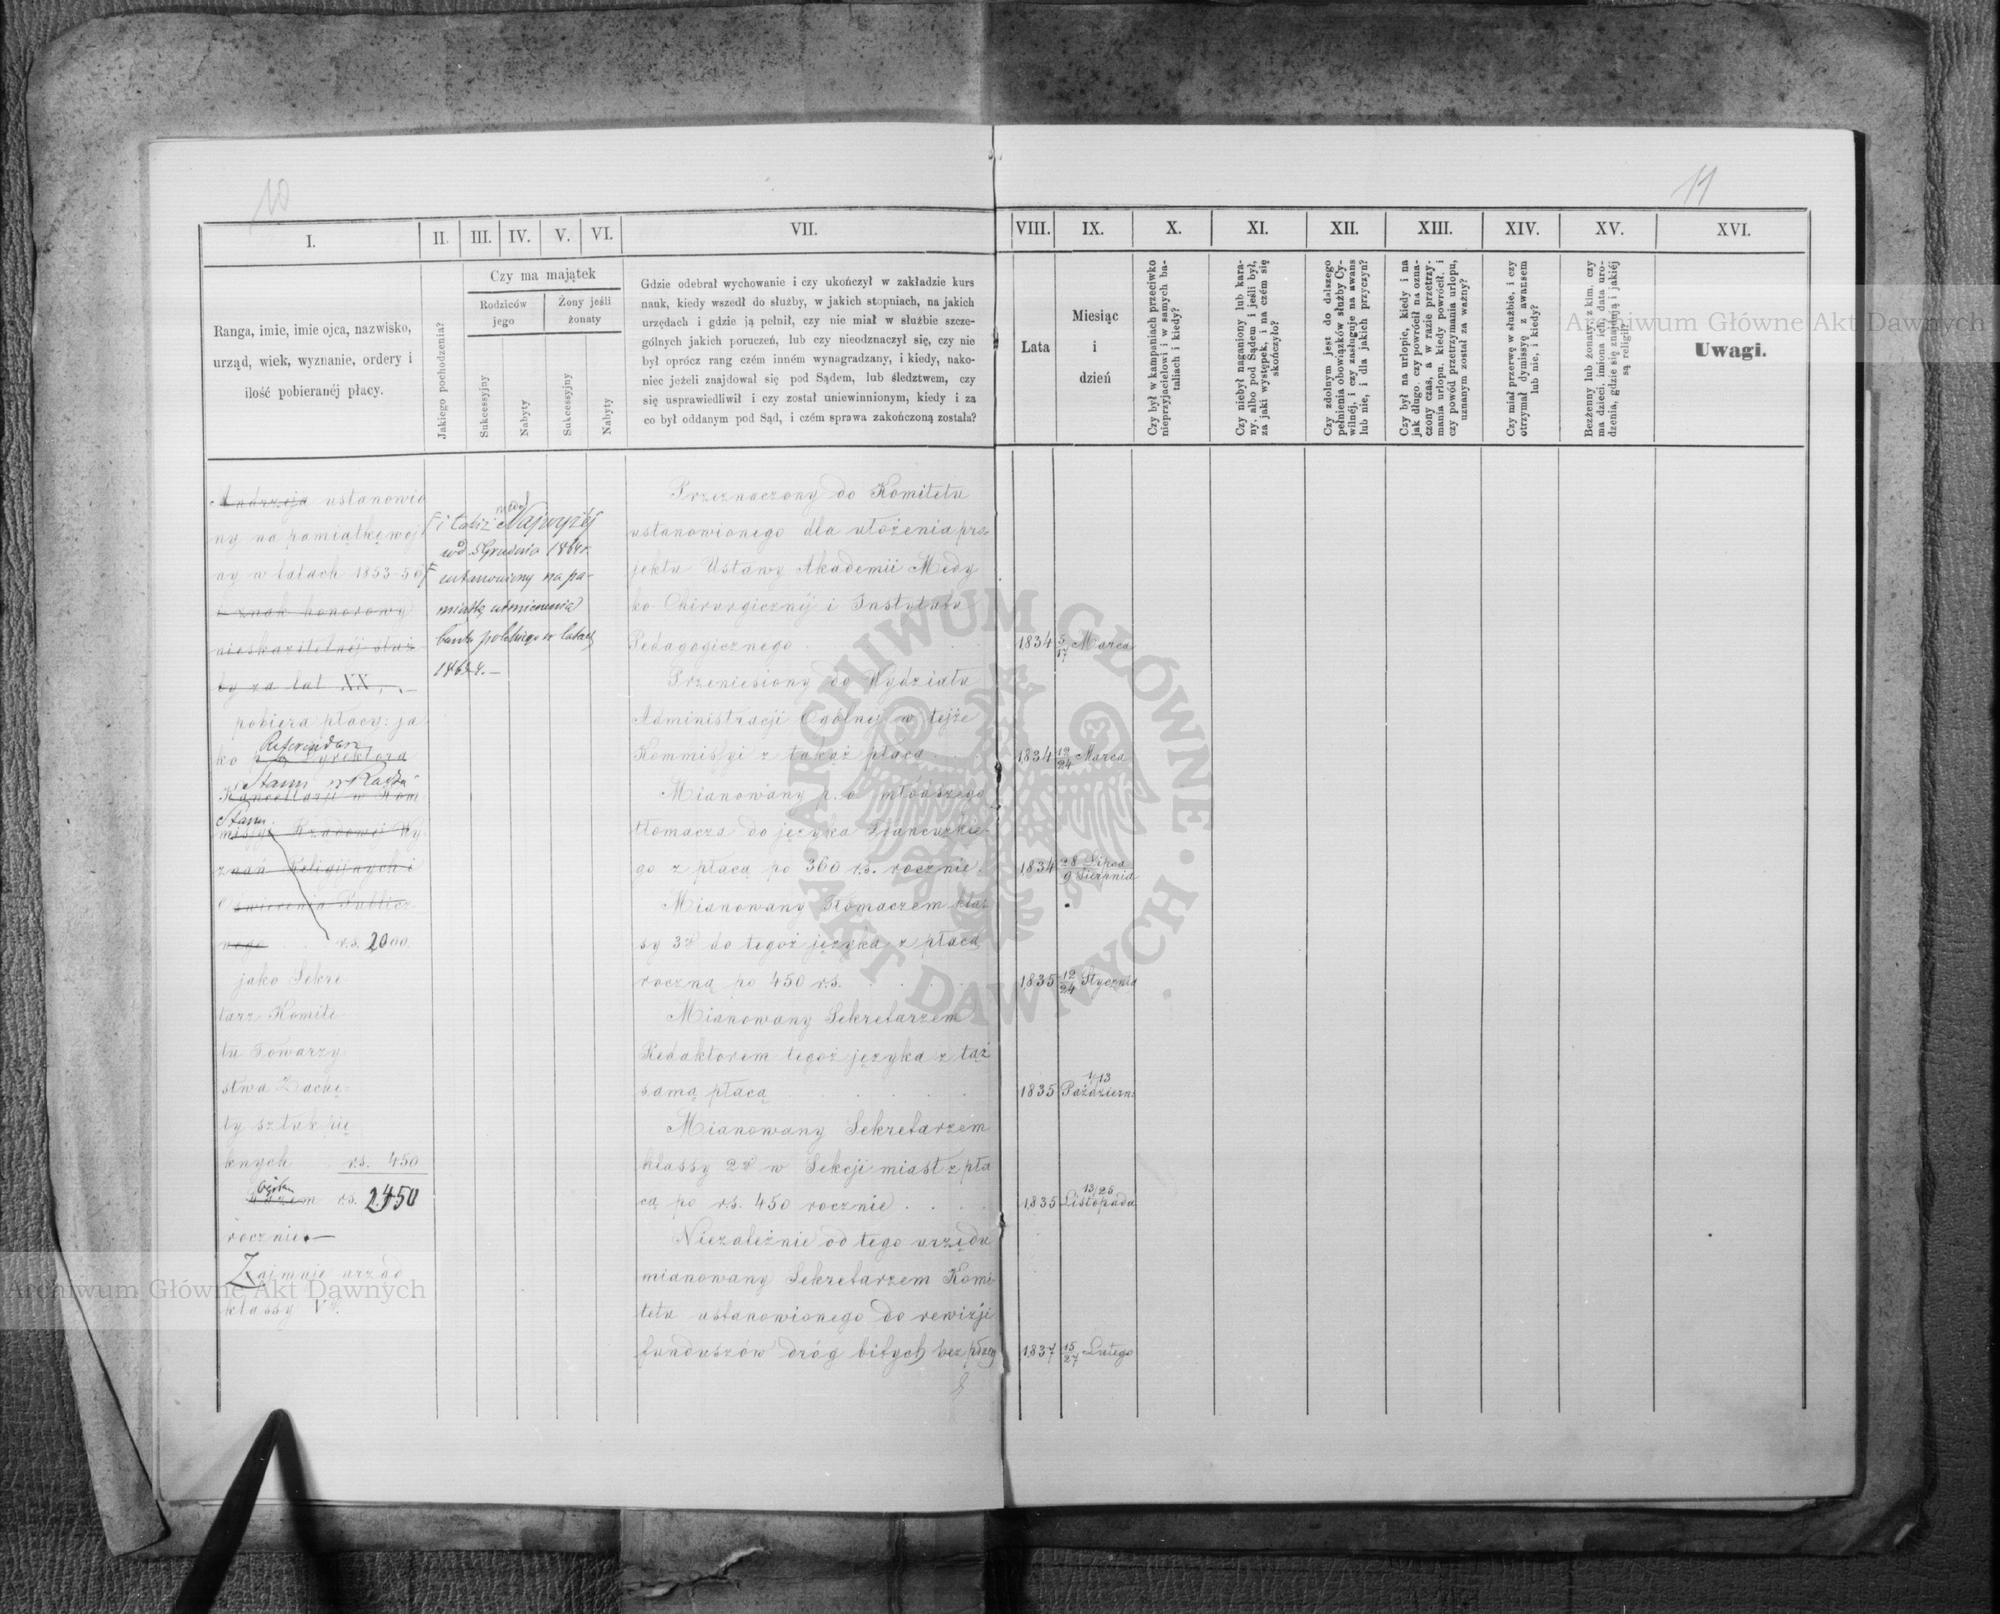 10
11
I.
II.
III.
IV.
V.
VI.
VII.
VIII.
IX.
X.
XI.
XII.
XIII.
XIV.
XV.
XVI.
Ranga, imie, imie ojca, nazwisko,
urząd, wiek, wyznanie, ordery i
ilość pobieranéj płacy.
Jakiego pochodzenia?
Czy ma majątek
Rodziców
jego
Żony jeśli
żonaty
Sukcessyjny
Nabyty
Sukcessyjny
Nabyty
Gdzie odebrał wychowanie i czy ukończył w zakładzie kurs
nauk, kiedy wszedł do służby, w jakich stopniach, na jakich
urzędach i gdzie ją pełnił, czy nie miał w służbie szcze-
gólnych jakich poruczeń, lub czy nieodznaczył się, czy nie
był oprócz rang czém inném wynagradzany, i kiedy, nako-
niec jeżeli znajdował się pod Sądem, lub śledztwem, czy
się usprawiedliwił i czy został uniewinnionym, kiedy i za
co był oddanym pod Sąd, i czém sprawa zakończoną została?
Lata
Miesiąc
i
dzień
Czy był w kampaniach przeciwko
nieprzyjacielowi i w samych ba-
taliach i kiedy?
Czy niebył naganiony lub kara-
ny, albo pod Sądem i jeśli był,
za jaki występek, i na czém się
skończyło?
Czy zdolnym jest do dalszego
pełnienia obowiązków służby Cy-
wilnéj, i czy zasługuje na awans
lub nie, i dla jakich przyczyn?
Czy był na urlopie, kiedy i na
jak długo, czy powrócił na ozna-
czony czas, a w razie przetrzy-
mania urlopu, kiedy powrócił, i
czy powód przetrzymania urlopu,
uznanym został za ważny?
Czy miał przerwę w służbie, i czy
otrzymał dymissyę z awansem
lub nie, i kiedy?
Bezżenny lub żonaty, z kim, czy
ma dzieci, imiona ich, data uro-
dzenia, gdzie się znajdują i jakiéj
są religii?
Uwagi.
Andrzeja ustanowio
ny na pamiątkę woj
ny w latach 1853-56
i znak honorowy
nieskazitelnéj służ
by za lat XX,
pobiera płacy: ja
ko Dyrektora
Referendarz
Stanu w Radzie
Kancellarji w Kom
Stanu
missyi Rządowej Wy
znań Religijnych i
Oświecenia Publicz
nego r.s. 2000.
jako Sekre
tarz Komite
tu Towarzy
stwa Zachę-
ty sztuk pię
knych r.s. 450
Ogółem
razem r.s. 2450
rocznie.—
Zajmuje urząd
klassy V
i takiż Najwyżéj
5 Grudnia 1864 r.
ustanowiony na pa-
miątkę
w latach
Przeznaczony do Komitetu
ustanowionego dla ułożenia pro-
jektu Ustawy Akademii Medy
ko Chirurgicznéj i Instytutu
Pedagogicznego
1834 5/17 Marca
Przeniesiony do Wydziału
Administracji Ogólnej w tejże
Kommissyi z takąż płacą
1834 12/24 Marca
Mianowany p. o. młodszego
tłomacza do języka Francuzkie-
go z płacą po 360 r.s. rocznie
1834 28 Lipca
9 Sierpnia
Mianowany Tłomaczem klas
sy 3éj do tegoż języka z płacą
roczną po 450 r.s.
1835 12/24 Stycznia
Mianowany Sekretarzem
Redaktorem tegoż języka z taż
samą płacą
1835 1/13 Październ:
Mianowany Sekretarzem
klassy 2éj w Sekcji miast z pła
cą po r.s. 450 rocznie
1835 13/25 Listopada
Niezależnie od tego urzędu
mianowany Sekretarzem Komi
tetu ustanowionego do rewizji
funduszów dróg bitych bez płacy
1837 15/27 Lutego
Archiwum Główne Akt Dawnych
Archiwum Główne Akt Dawnych
ARCHIWUM GŁÓWNE · AKT DAWNYCH ·